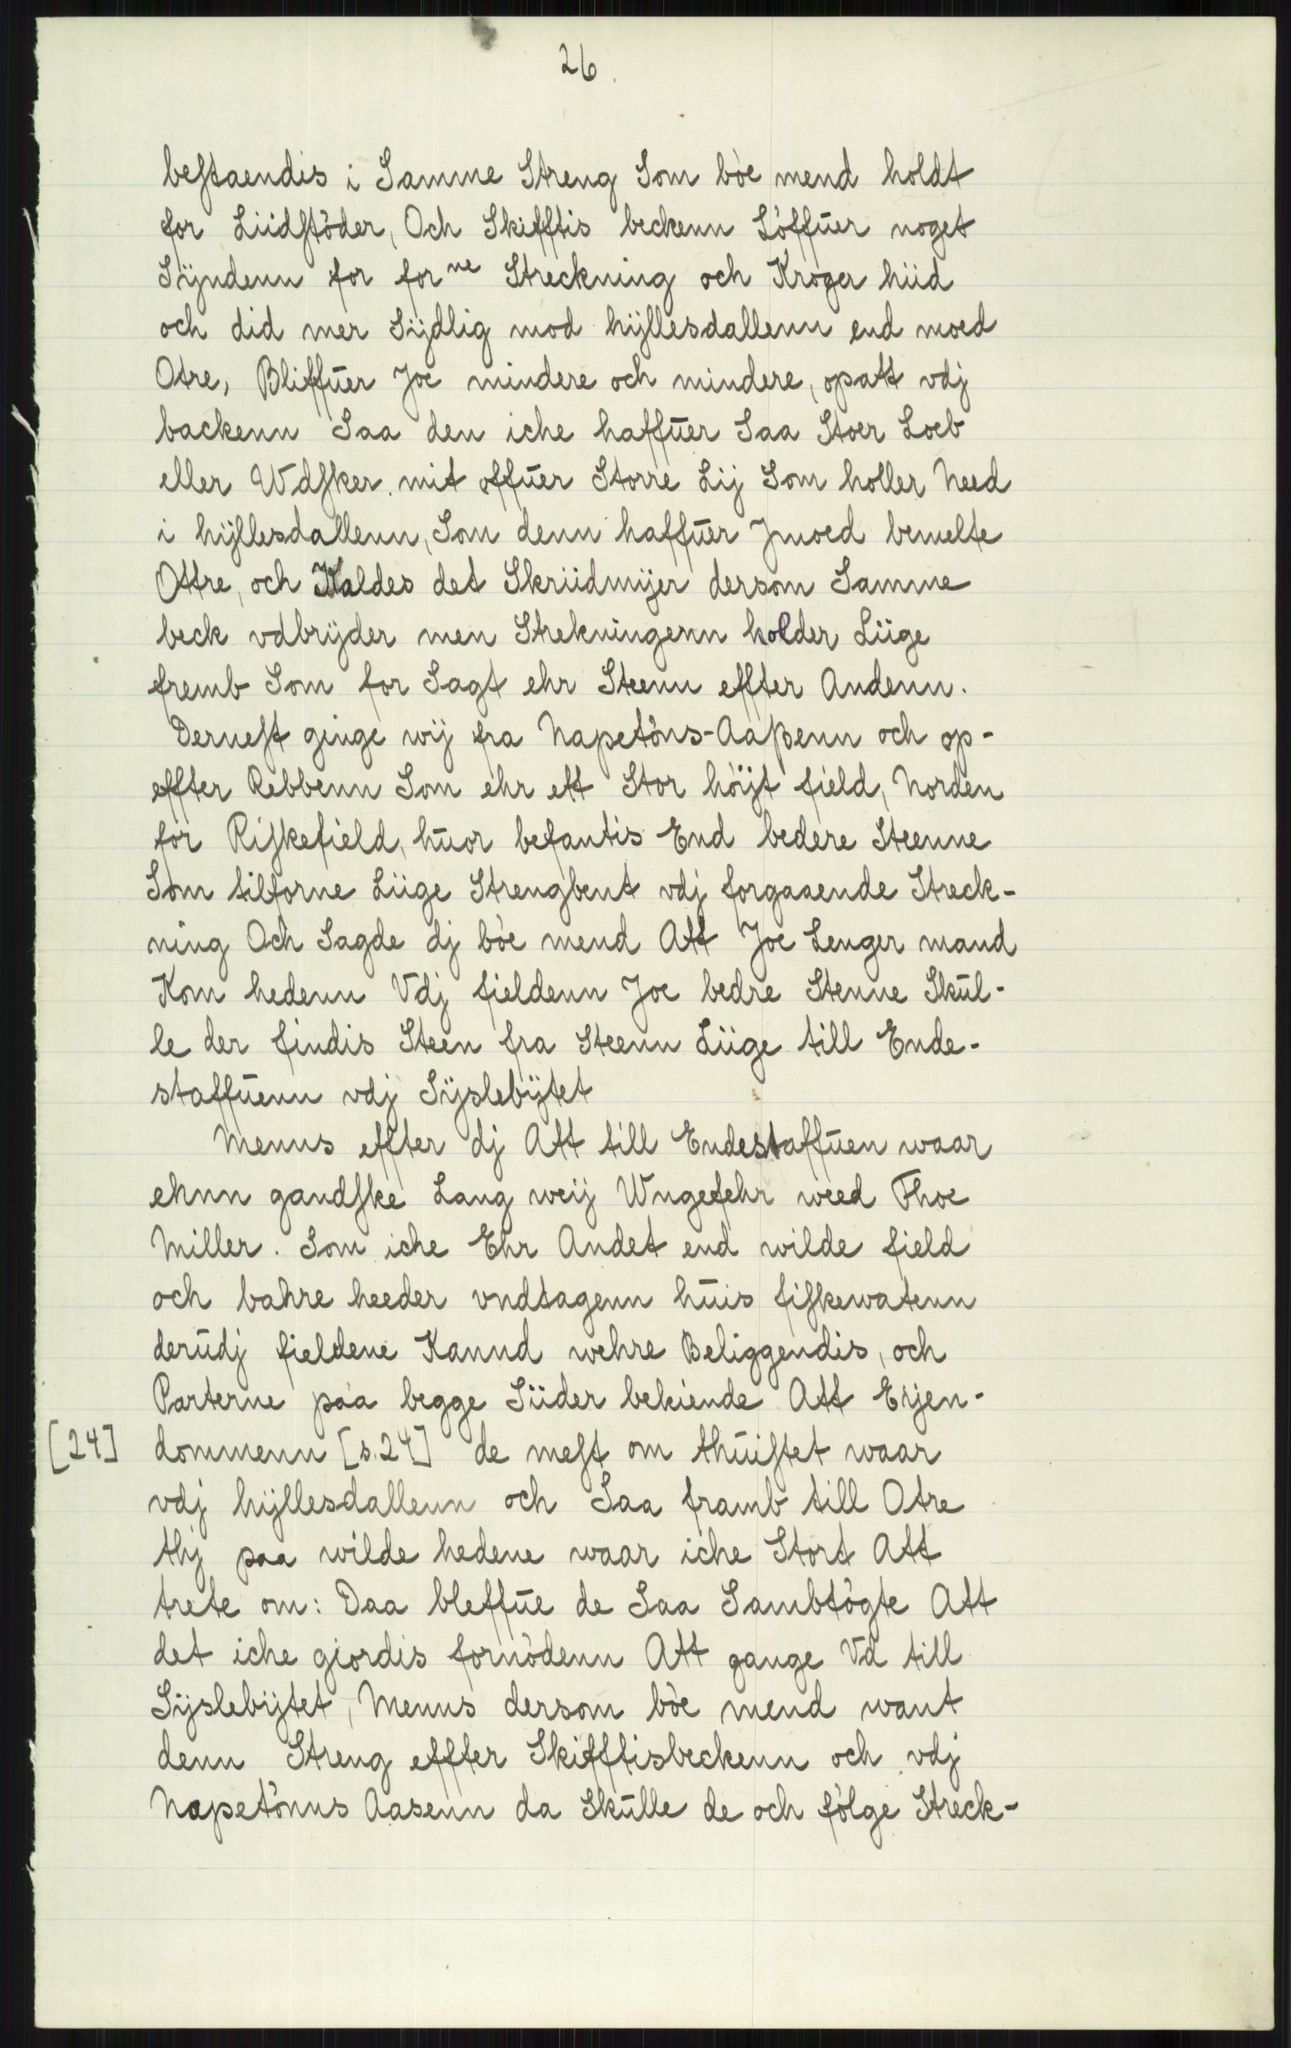 26.
bestaendis i Samme Streng Som bòe mend holdt
for Liidstöder, Och Skifftis beckenn Löffuer noget
Sÿndenn for forne Streckning och Kroger hiid
och did mer Sÿdlig mod hÿllesdallenn end moed
Otre, Bliffuer Joe mindere och mindere, opatt vdj
backenn Saa den iche haffuer Saa Stoer Loeb
eller Wdsker mit offuer Storre Lij Som holler Need
i hÿllesdallenn, Som denn haffuer Jmoed bemelte
Ottre, och Kaldes det Skriidmÿer dersom Samme
beck vdbrÿder men Strekningenn holder Liige
fremb Som for Sagt ehr Steenn effter Andenn.
Dernest ginge wij fra Napetòns-Aaßenn och op-
effter Ribbenn Som ehr ett Stor höÿt field, Norden
for Riskefield, huor befantis End bedere Steenne
Som tilforne Liige Strengbent vdj forgaaende Streck-
ning Och Sagde dj bòe mend Att Joe Lenger mand
Kom hedenn Vdj fieldenn Joe bedre Stenne Skul-
le der findis Steen fra Steenn Liige till Ende-
staffuenn vdj Sÿslebÿtet
Menns effter dj Att till Endestaffuen waar
ehnn gandske Lang weij Wngefehr weed Thoe
Miller. Som iche Ehr Andet end wilde field
och bahre heeder vndtagenn huis fiskewatenn
derudj fieldene Kannd wehre Beliggendis, och
Parterne paa begge Siider bekiende Att Eijen-
[24] dommenn [s.24] de mest om thuistet waar
vdj hÿllesdallenn och Saa framb till Otre
thj paa wilde hedene waar iche Stort Att
trete om: Daa bleffue de Saa Sambtögte Att
det iche giordis fornòdenn Att gange Vd till
Sÿslebÿtet, Menns dersom bòe mend want
denn Streng effter Skifftisbeckenn och vdj
Napetònns Aasenn da Skulle de och følge Streck-